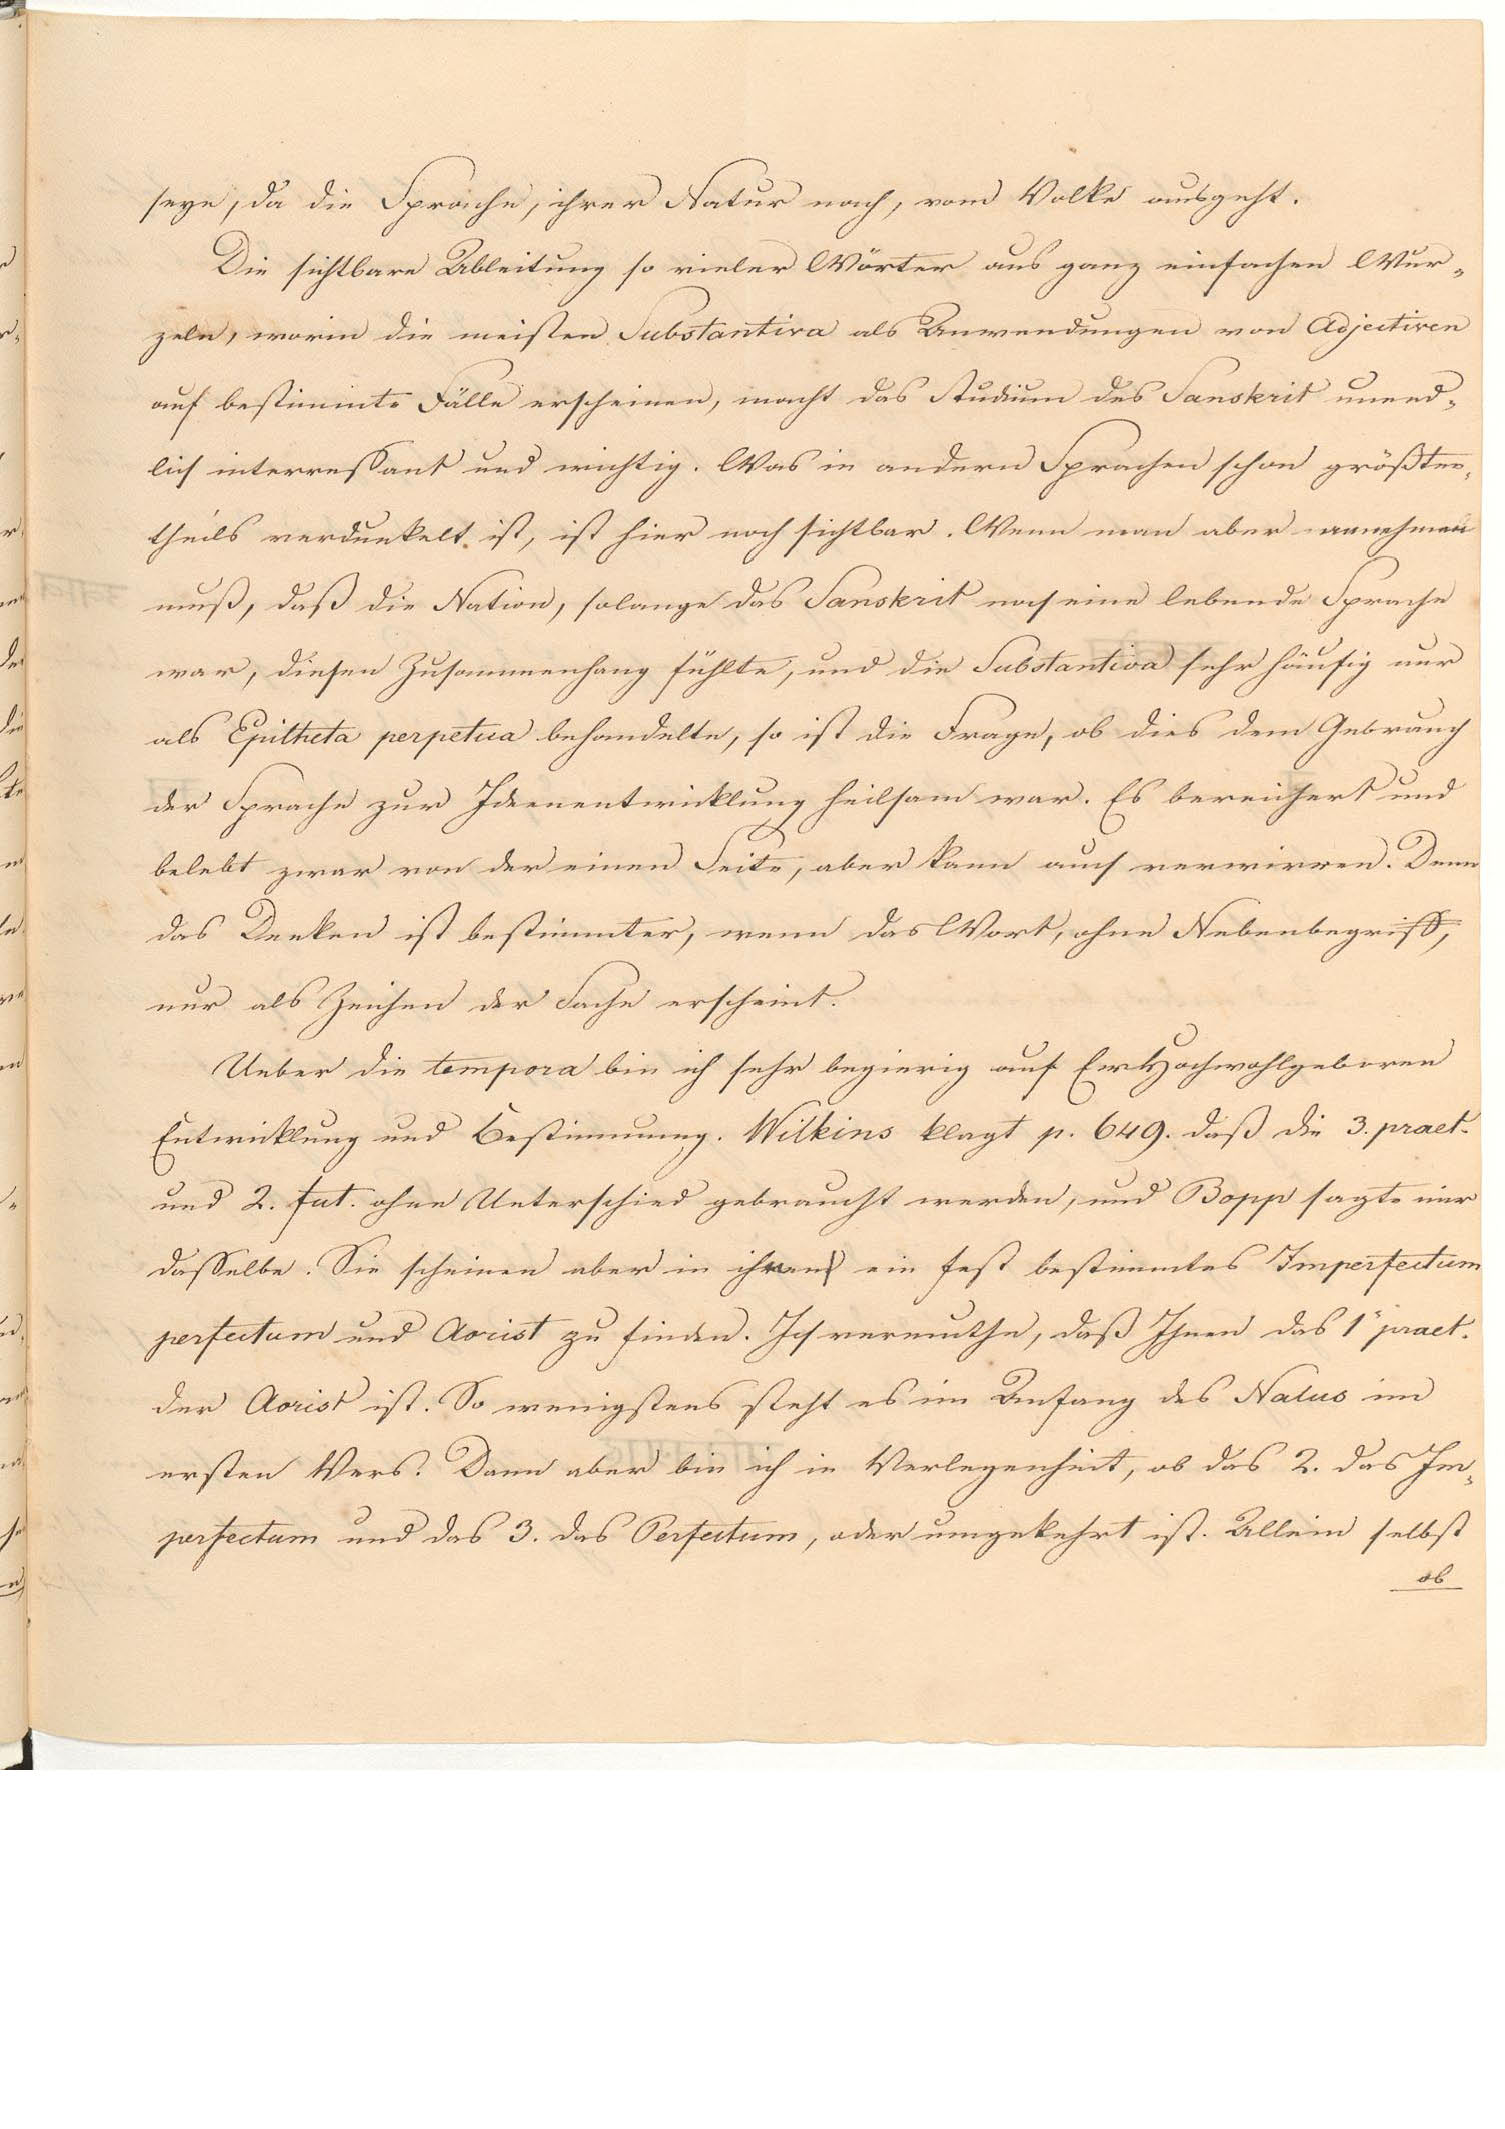 seye, da die Sprache, ihrer Natur nach, vom Volke ausgeht.
Die sichtbare Ableitung so vieler Wörter aus ganz einfachen Wur-
zeln, worin die meisten Substantiva als Anwendungen von Adjectiven
auf bestimmte Fälle erscheinen, macht das Studium des Sanskrit unend-
lich interressant und wichtig. Was in andern Sprachen schon größten-
theils verdunkelt ist, ist hier noch sichtbar. Wenn man aber annehmen
muß, daß die Nation, solange das Sanskrit noch eine lebende Sprache
war, diesen Zusammenhang fühlte, und die Substantiva sehr häufig nur
als Epitheta perpetua behandelte, so ist die Frage, ob dies dem Gebrauch
der Sprache zur Ideenentwicklung heilsam war. Es bereichert und
belebt zwar von der einen Seite, aber kann auch verwirren. Denn
das Denken ist bestimmter, wenn das Wort, ohne Nebenbegriff,
nur als Zeichen der Sache erscheint.
Ueber die tempora bin ich sehr begierig auf Ew Hochwohlgeboren
Entwicklung und Bestimmung. Wilkins klagt p. 649. daß die 3. praet.
und 2. fut. ohne Unterschied gebraucht werden, und Bopp sagte mir
dasselbe. Sie scheinen aber in ihnen ein fest bestimmtes Imperfectum
perfectum und Aorist zu finden. Ich vermuthe, daß Ihnen das 1 praet.
der Aorist ist. So wenigstens steht es im Anfang des Nalus im
ersten Vers. Dann aber bin ich in Verlegenheit, ob das 2. das Im-
perfectum und das 3. das Perfectum, oder umgekehrt ist. Allein selbst
ob